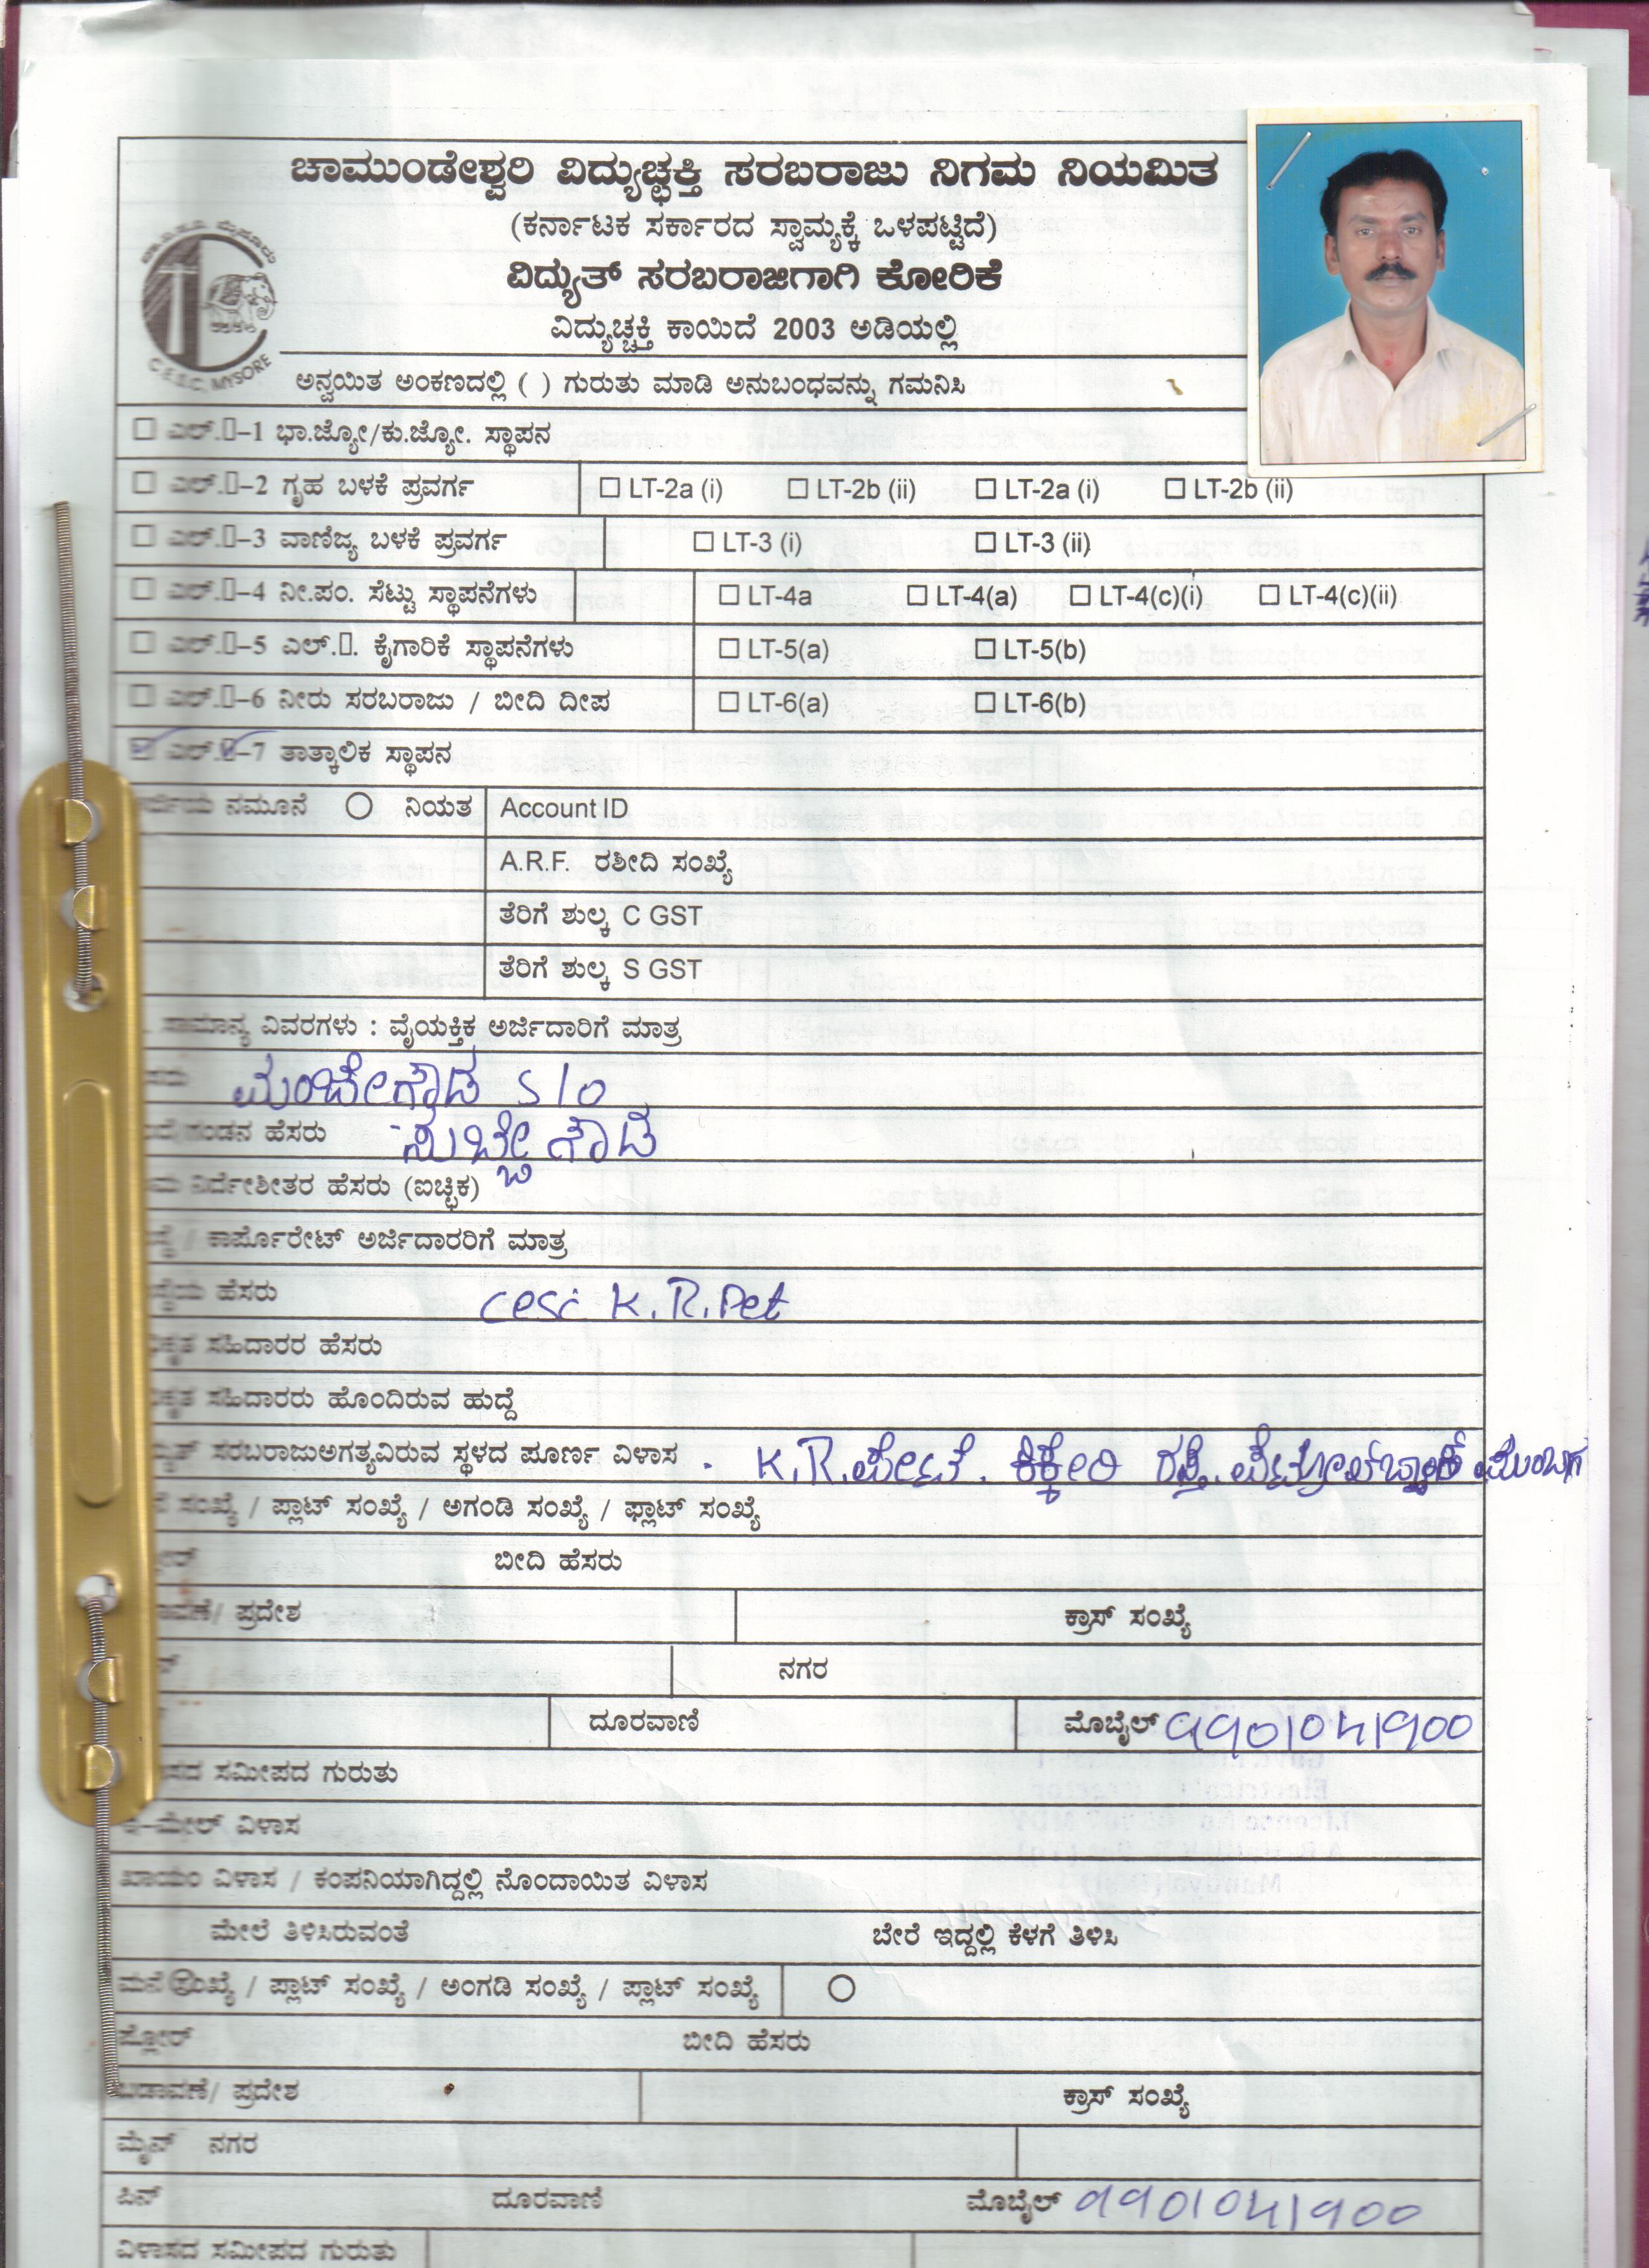 ಚಾಮುಂಡೇಶ್ವರಿ ವಿದ್ಯುಚ್ಛಕ್ತಿ ಸರಬರಾಜು ನಿಗಮ ನಿಯಮಿತ
(ಕರ್ನಾಟಕ ಸರ್ಕಾರದ ಸ್ವಾಮ್ಯಕ್ಕೆ ಒಳಪಟ್ಟಿದೆ)
ವಿದ್ಯುತ್ ಸರಬರಾಜಿಗಾಗಿ ಕೋರಿಕೆ
ವಿದ್ಯುಚ್ಛಕ್ತಿ ಕಾಯಿದೆ 2003 ಅಡಿಯಲ್ಲಿ
C.E.S.C, MYSORE
ಅನ್ವಯಿತ ಅಂಕಣದಲ್ಲಿ ( ) ಗುರುತು ಮಾಡಿ ಅನುಬಂಧವನ್ನು ಗಮನಿಸಿ
ಎಲ್.-1 ಭಾ.ಜ್ಯೋ/ಕು.ಜ್ಯೋ. ಸ್ಥಾಪನ
ಎಲ್.-2 ಗೃಹ ಬಳಕೆ ಪ್ರವರ್ಗ LT-2a (i) LT-2b (ii) LT-2a (i) LT-2b (ii)
ಎಲ್.-3 ವಾಣಿಜ್ಯ ಬಳಕೆ ಪ್ರವರ್ಗ LT-3 (i) LT-3 (ii)
ಎಲ್.-4 ನೀ.ಪಂ. ಸೆಟ್ಟು ಸ್ಥಾಪನೆಗಳು LT-4a LT-4(a) LT-4(c)(i) LT-4(c)(ii)
ಎಲ್.-5 ಎಲ್.. ಕೈಗಾರಿಕೆ ಸ್ಥಾಪನೆಗಳು LT-5(a) LT-5(b)
ಎಲ್.-6 ನೀರು ಸರಬರಾಜು / ಬೀದಿ ದೀಪ LT-6(a) LT-6(b)
ಎಲ್.-7 ತಾತ್ಕಾಲಿಕ ಸ್ಥಾಪನ
ನಮೂನೆ ನಿಯತ Account ID
A.R.F. ರಶೀದಿ ಸಂಖ್ಯೆ
ತೆರಿಗೆ ಶುಲ್ಕ C GST
ತೆರಿಗೆ ಶುಲ್ಕ S GST
ಸಾಮಾನ್ಯ ವಿವರಗಳು : ವೈಯಕ್ತಿಕ ಅರ್ಜಿದಾರಿಗೆ ಮಾತ್ರ
ಮಂಚೇಗೌಡ S/o
ಗಂಡನ ಹೆಸರು ಸುಬ್ಬೇಗೌಡ
ನಿರ್ದೇಶೀತರ ಹೆಸರು (ಐಚ್ಛಿಕ)
/ ಕಾರ್ಪೊರೇಟ್ ಅರ್ಜಿದಾರರಿಗೆ ಮಾತ್ರ
ಹೆಸರು cesc K.R.Pet
ಸಹಿದಾರರ ಹೆಸರು
ಸಹಿದಾರರು ಹೊಂದಿರುವ ಹುದ್ದೆ
ಸರಬರಾಜುಅಗತ್ಯವಿರುವ ಸ್ಥಳದ ಪೂರ್ಣ ವಿಳಾಸ . K.R.ಪೇಟೆ. ಕಿಕ್ಕೇರಿ ರಸ್ತೆ.
ಸಂಖ್ಯೆ / ಪ್ಲಾಟ್ ಸಂಖ್ಯೆ / ಅಗಂಡಿ ಸಂಖ್ಯೆ / ಫ್ಲಾಟ್ ಸಂಖ್ಯೆ
ಬೀದಿ ಹೆಸರು
/ ಪ್ರದೇಶ ಕ್ರಾಸ್ ಸಂಖ್ಯೆ
ನಗರ
ದೂರವಾಣಿ ಮೊಬೈಲ್ 9901041900
ಸಮೀಪದ ಗುರುತು
ಇ-ಮೇಲ್ ವಿಳಾಸ
ಖಾಯಂ ವಿಳಾಸ / ಕಂಪನಿಯಾಗಿದ್ದಲ್ಲಿ ನೊಂದಾಯಿತ ವಿಳಾಸ
ಮೇಲೆ ತಿಳಿಸಿರುವಂತೆ ಬೇರೆ ಇದ್ದಲ್ಲಿ ಕೆಳಗೆ ತಿಳಿಸಿ
ಮನೆ ಸಂಖ್ಯೆ / ಪ್ಲಾಟ್ ಸಂಖ್ಯೆ / ಅಂಗಡಿ ಸಂಖ್ಯೆ / ಫ್ಲಾಟ್ ಸಂಖ್ಯೆ
ಫ್ಲೋರ್ ಬೀದಿ ಹೆಸರು
ಬಡಾವಣೆ/ ಪ್ರದೇಶ ಕ್ರಾಸ್ ಸಂಖ್ಯೆ
ಮೈನ್ ನಗರ
ಪಿನ್ ದೂರವಾಣಿ ಮೊಬೈಲ್ 9901041900
ವಿಳಾಸದ ಸಮೀಪದ ಗುರುತು